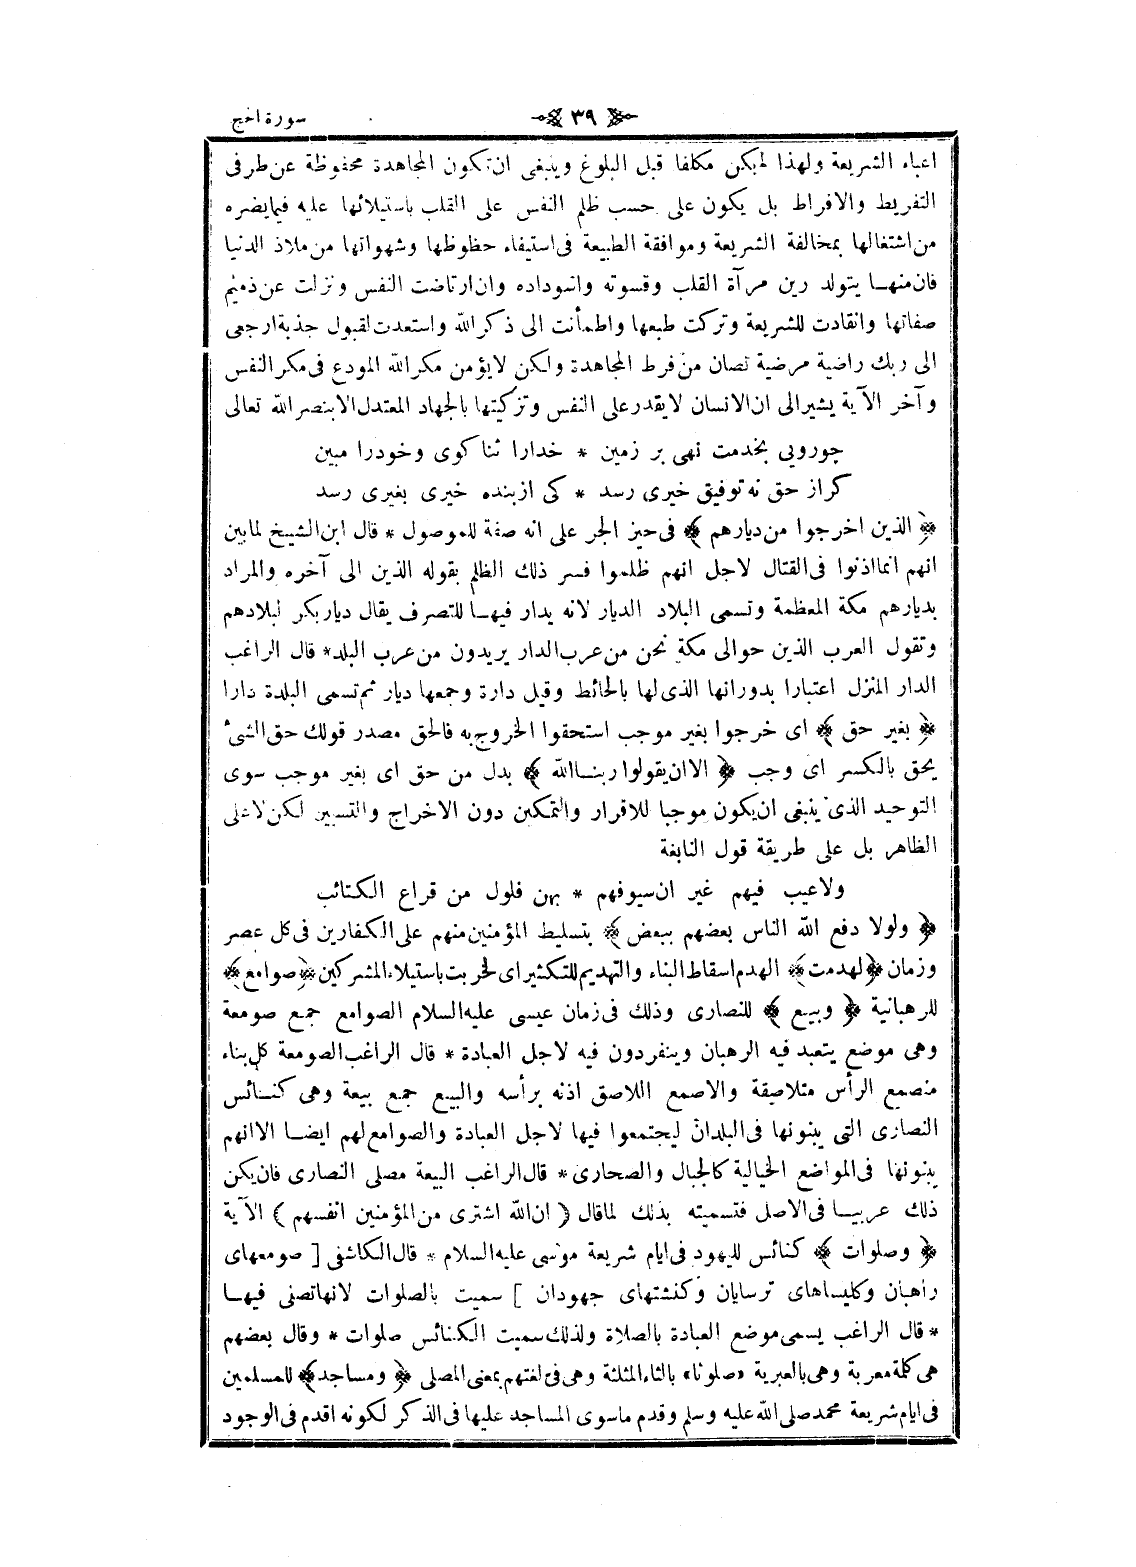 سورة الحج ٣٩
اعباء الشريعة ولهذا لم يكن مكلفا قبل البلوغ وينبغى ان تكون المجاهدة محفوظة عن طرفى
التفريط والافراط بل يكون على حسب ظلم النفس على القلب باستيلائها عليه فيما يضره
من اشتغالها بمخالفة الشريعة وموافقة الطبيعة فى استيفاء حظوظها وشهواتها من ملاذ الدنيا
فان منهـا يتولد رين مرآة القلب وقسوته واسوداده وان ارتاضت النفس ونزلت عن ذميم
صفاتها وانقادت للشريعة وتركت طبعها واطمأنت الى ذكر الله واستعدت لقبول جذبة ارجعى
الى ربك راضية مرضية تصان من فرط المجاهدة ولكن لا يؤمن مكر الله المودع فى مكر النفس
وآخر الآية يشير الى ان الانسان لا يقدر على النفس وتزكيتها بالجهاد المعتدل الا بنصر الله تعالى
چورويى بخدمت نهى بر زمين * خدارا ثنا كوى وخودرا مبين
كر از حق نه توفيق خيرى رسد * كى از بنده خيرى بغيرى رسد
﴿ الذين اخرجوا من ديارهم ﴾ فى حيز الجر على انه صفة للموصول * قال ابن الشيخ لما بين
انهم انما اذنوا فى القتال لاجل انهم ظلموا فسر ذلك الظلم بقوله الذين الى آخره والمراد
بديارهم مكة المعظمة وتسمى البلاد الديار لانه يدار فيهـا للتصرف يقال ديار بكر لبلادهم
وتقول العرب الذين حوالى مكة نحن من عرب الدار يريدون من عرب البلد * قال الراغب
الدار المنزل اعتبارا بدورانها الذى لها بالحائط وقيل دارة وجمعها ديار ثم تسمى البلدة دارا
﴿ بغير حق ﴾ اى خرجوا بغير موجب استحقوا الخروج به فالحق مصدر قولك حق الشئ
يحق بالكسر اى وجب ﴿ الا ان يقولوا ربنـا الله ﴾ بدل من حق اى بغير موجب سوى
التوحيد الذى ينبغى ان يكون موجبا للاقرار والتمكين دون الاخراج والتسيير لكن لا على
الظاهر بل على طريقة قول النابغة
ولا عيب فيهم غير ان سيوفهم * بهن فلول من قراع الكتائب
﴿ ولولا دفع الله الناس بعضهم ببعض ﴾ بتسليط المؤمنين منهم على الكفارين فى كل عصر
وزمان ﴿ لهدمت ﴾ الهدم اسقاط البناء والتهديم للتكثير اى لخربت باستيلاء المشركين ﴿ صوامع ﴾
للرهبانية ﴿ وبيع ﴾ للنصارى وذلك فى زمان عيسى عليه السلام الصوامع جمع صومعة
وهى موضع يتعبد فيه الرهبان وينفردون فيه لاجل العبادة * قال الراغب الصومعة كل بناء
منصمع الرأس متلاصقة والاصمع اللاصق اذنه برأسه والبيع جمع بيعة وهى كنـائس
النصارى التى يبنونها فى البلدان ليجتمعوا فيها لاجل العبادة والصوامع لهم ايضـا الا انهم
يبنونها فى المواضع الخيالية كالجبال والصحارى * قال الراغب البيعة مصلى النصارى فان يكن
ذلك عربيـا فى الاصل فتسميته بذلك لما قال ( ان الله اشترى من المؤمنين انفسهم ) الآية
﴿ وصلوات ﴾ كنائس لليهود فى ايام شريعة موسى عليه السلام * قال الكاشفى [ صومعهاى
راهبان وكليساهاى ترسايان وكنشتهاى جهودان ] سميت بالصلوات لانها تصلى فيهـا
* قال الراغب يسمى موضع العبادة بالصلاة ولذلك سميت الكنائس صلوات * وقال بعضهم
هى كلة معربة وهى بالعبرية «صلوثا» بالثاء المثلثة وهى فى لغتهم بمعنى المصلى ﴿ ومساجد ﴾ للمسلمين
فى ايام شريعة محمد صلى الله عليه وسلم وقدم ماسوى المساجد عليها فى الذكر لكونه اقدم فى الوجود